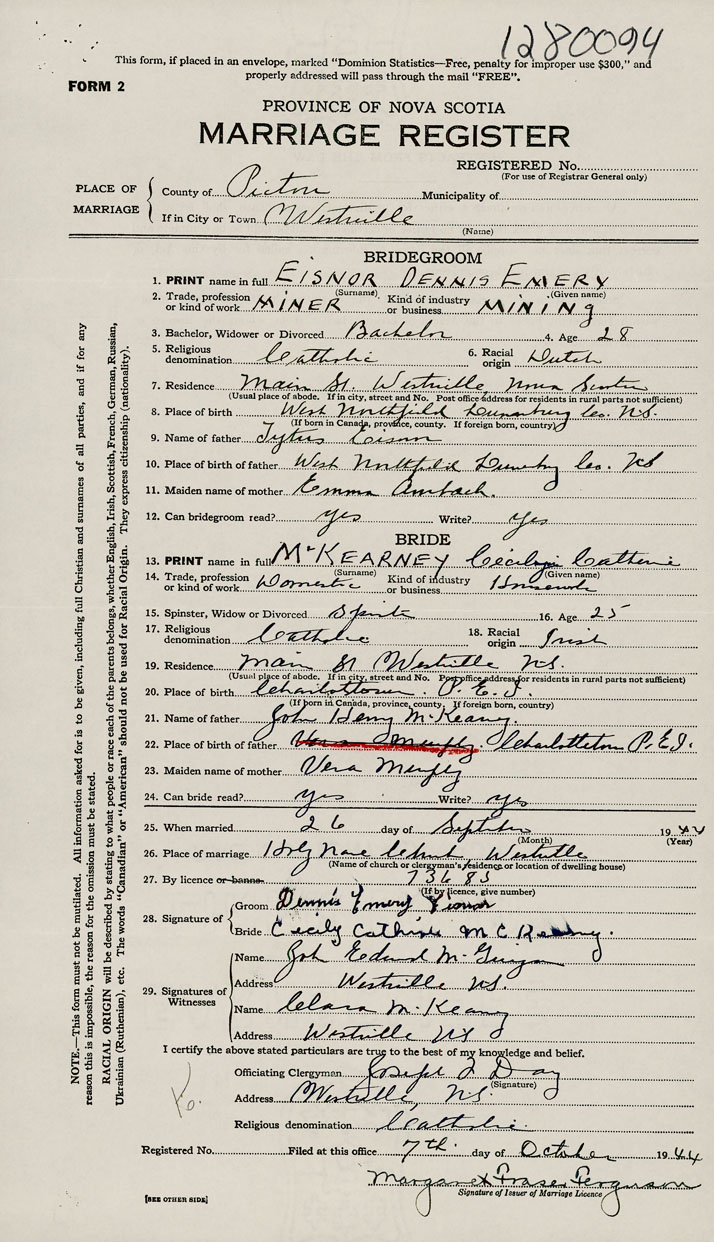 1280094
This form, if placed in an envelope, marked "Dominion Statistics—Free, penalty for improper use $300," and
properly addressed will pass through the mail "FREE".
FORM 2
PROVINCE OF NOVA SCOTIA
MARRIAGE REGISTER
REGISTERED No.
(For use of Registrar General only)
PLACE OF MARRIAGE
County of Pictou Municipality of
If in City or Town Westville
(Name)
BRIDEGROOM
1. PRINT name in full EISNOR DENNIS EMERY
(Surname) (Given name)
2. Trade, profession or kind of work MINER Kind of industry or business MINING
3. Bachelor, Widower or Divorced Bachelor 4. Age 28
5. Religious denomination Catholic 6. Racial origin Dutch
7. Residence Main St. Westville, Nova Scotia
(Usual place of abode. If in city, street and No. Post office address for residents in rural parts not sufficient)
8. Place of birth West Northfield Lunenburg Co. N.S.
(If born in Canada, province, county. If foreign born, country)
9. Name of father Tytus Eisnor
10. Place of birth of father West Northfield Lunenburg Co. NS
11. Maiden name of mother Emma
12. Can bridegroom read? yes Write? yes
BRIDE
13. PRINT name in full McKEARNEY Catherine
(Surname) (Given name)
14. Trade, profession or kind of work Domestic Kind of industry or business Housework
15. Spinster, Widow or Divorced Spinster 16. Age 25
17. Religious denomination Catholic 18. Racial origin Irish
19. Residence Main St Westville NS.
(Usual place of abode. If in city, street and No. Post office address for residents in rural parts not sufficient)
20. Place of birth Charlottetown. P.E.I.
(If born in Canada, province, county. If foreign born, country)
21. Name of father John Henry McKearney
22. Place of birth of father Vera Murphy. Charlottetown P.E.I.
23. Maiden name of mother Vera Murphy
24. Can bride read? yes Write? yes
25. When married 26 day of September 1944
(Month) (Year)
26. Place of marriage Holy Name Church, Westville
(Name of church or clergyman's residence or location of dwelling house)
27. By licence or banns 73683
(If by licence, give number)
28. Signature of
Groom Dennis Emery Eisnor
Bride Cecily Catherine McKearney.
29. Signatures of Witnesses
Name John Edward
Address Westville NS.
Name Clara McKearney
Address Westville NS
I certify the above stated particulars are true to the best of my knowledge and belief.
Officiating Clergyman Joseph Day
(Signature)
Address Westville, NS.
Religious denomination Catholic
Registered No. Filed at this office 7th day of October 1944
Margaret Fraser Ferguson
Signature of Issuer of Marriage Licence
[SEE OTHER SIDE]
NOTE.—This form must not be mutilated. All information asked for is to be given, including full Christian and surnames of all parties, and if for any
reason this is impossible, the reason for the omission must be stated.
RACIAL ORIGIN will be described by stating to what people or race each of the parents belongs, whether English, Irish, Scottish, French, German, Russian,
Ukrainian (Ruthenian), etc. The words "Canadian" or "American" should not be used for Racial Origin. They express citizenship (nationality).